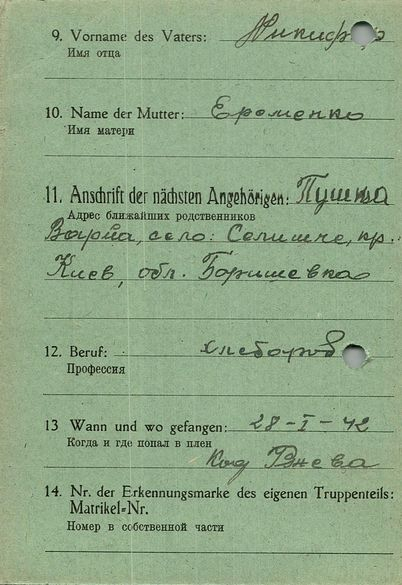 9. Vorname des Vaters: Никифор
Имя отца
10. Name der Mutter: Еременко
Имя матери
11. Anschrift der nächsten Angehörigen: Пушка
Адрес ближайших родственников
село: Селишче, кр.
Киев, обл. Баришевка
12. Beruf: хлебороб
Профессия
13 Wann und wo gefangen: 28-I-42
Когда и где попал в плен
Ржева
14. Nr. der Erkennungsmarke des eigenen Truppenteils:
Matrikel=Nr.
Номер в собственной части